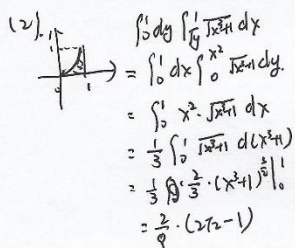 (2).
∫₀¹ dy ∫_{√y}^1 √(x³+1) dx
1
1
0
= ∫₀¹ dx ∫₀^{x²} √(x³+1) dy.
= ∫₀¹ x² · √(x³+1) dx
= 1/3 ∫₀¹ √(x³+1) d(x³+1)
= 1/3 · 2/3 · (x³+1)^{3/2} |₀¹
= 2/9 · (2√2 − 1)